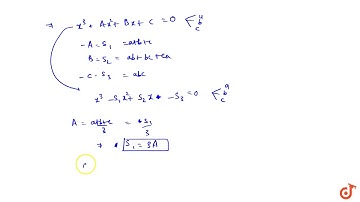 → x³ + Ax² + Bx + C = 0 < a b c
- A = S₁ = a+b+c
B = S₂ = ab+bc+ca
- C = S₃ = abc
x³ - S₁x² + S₂x - S₃ = 0 < a b c
A = a+b+c/3 = S₁/3
⇒ S₁ = 3A